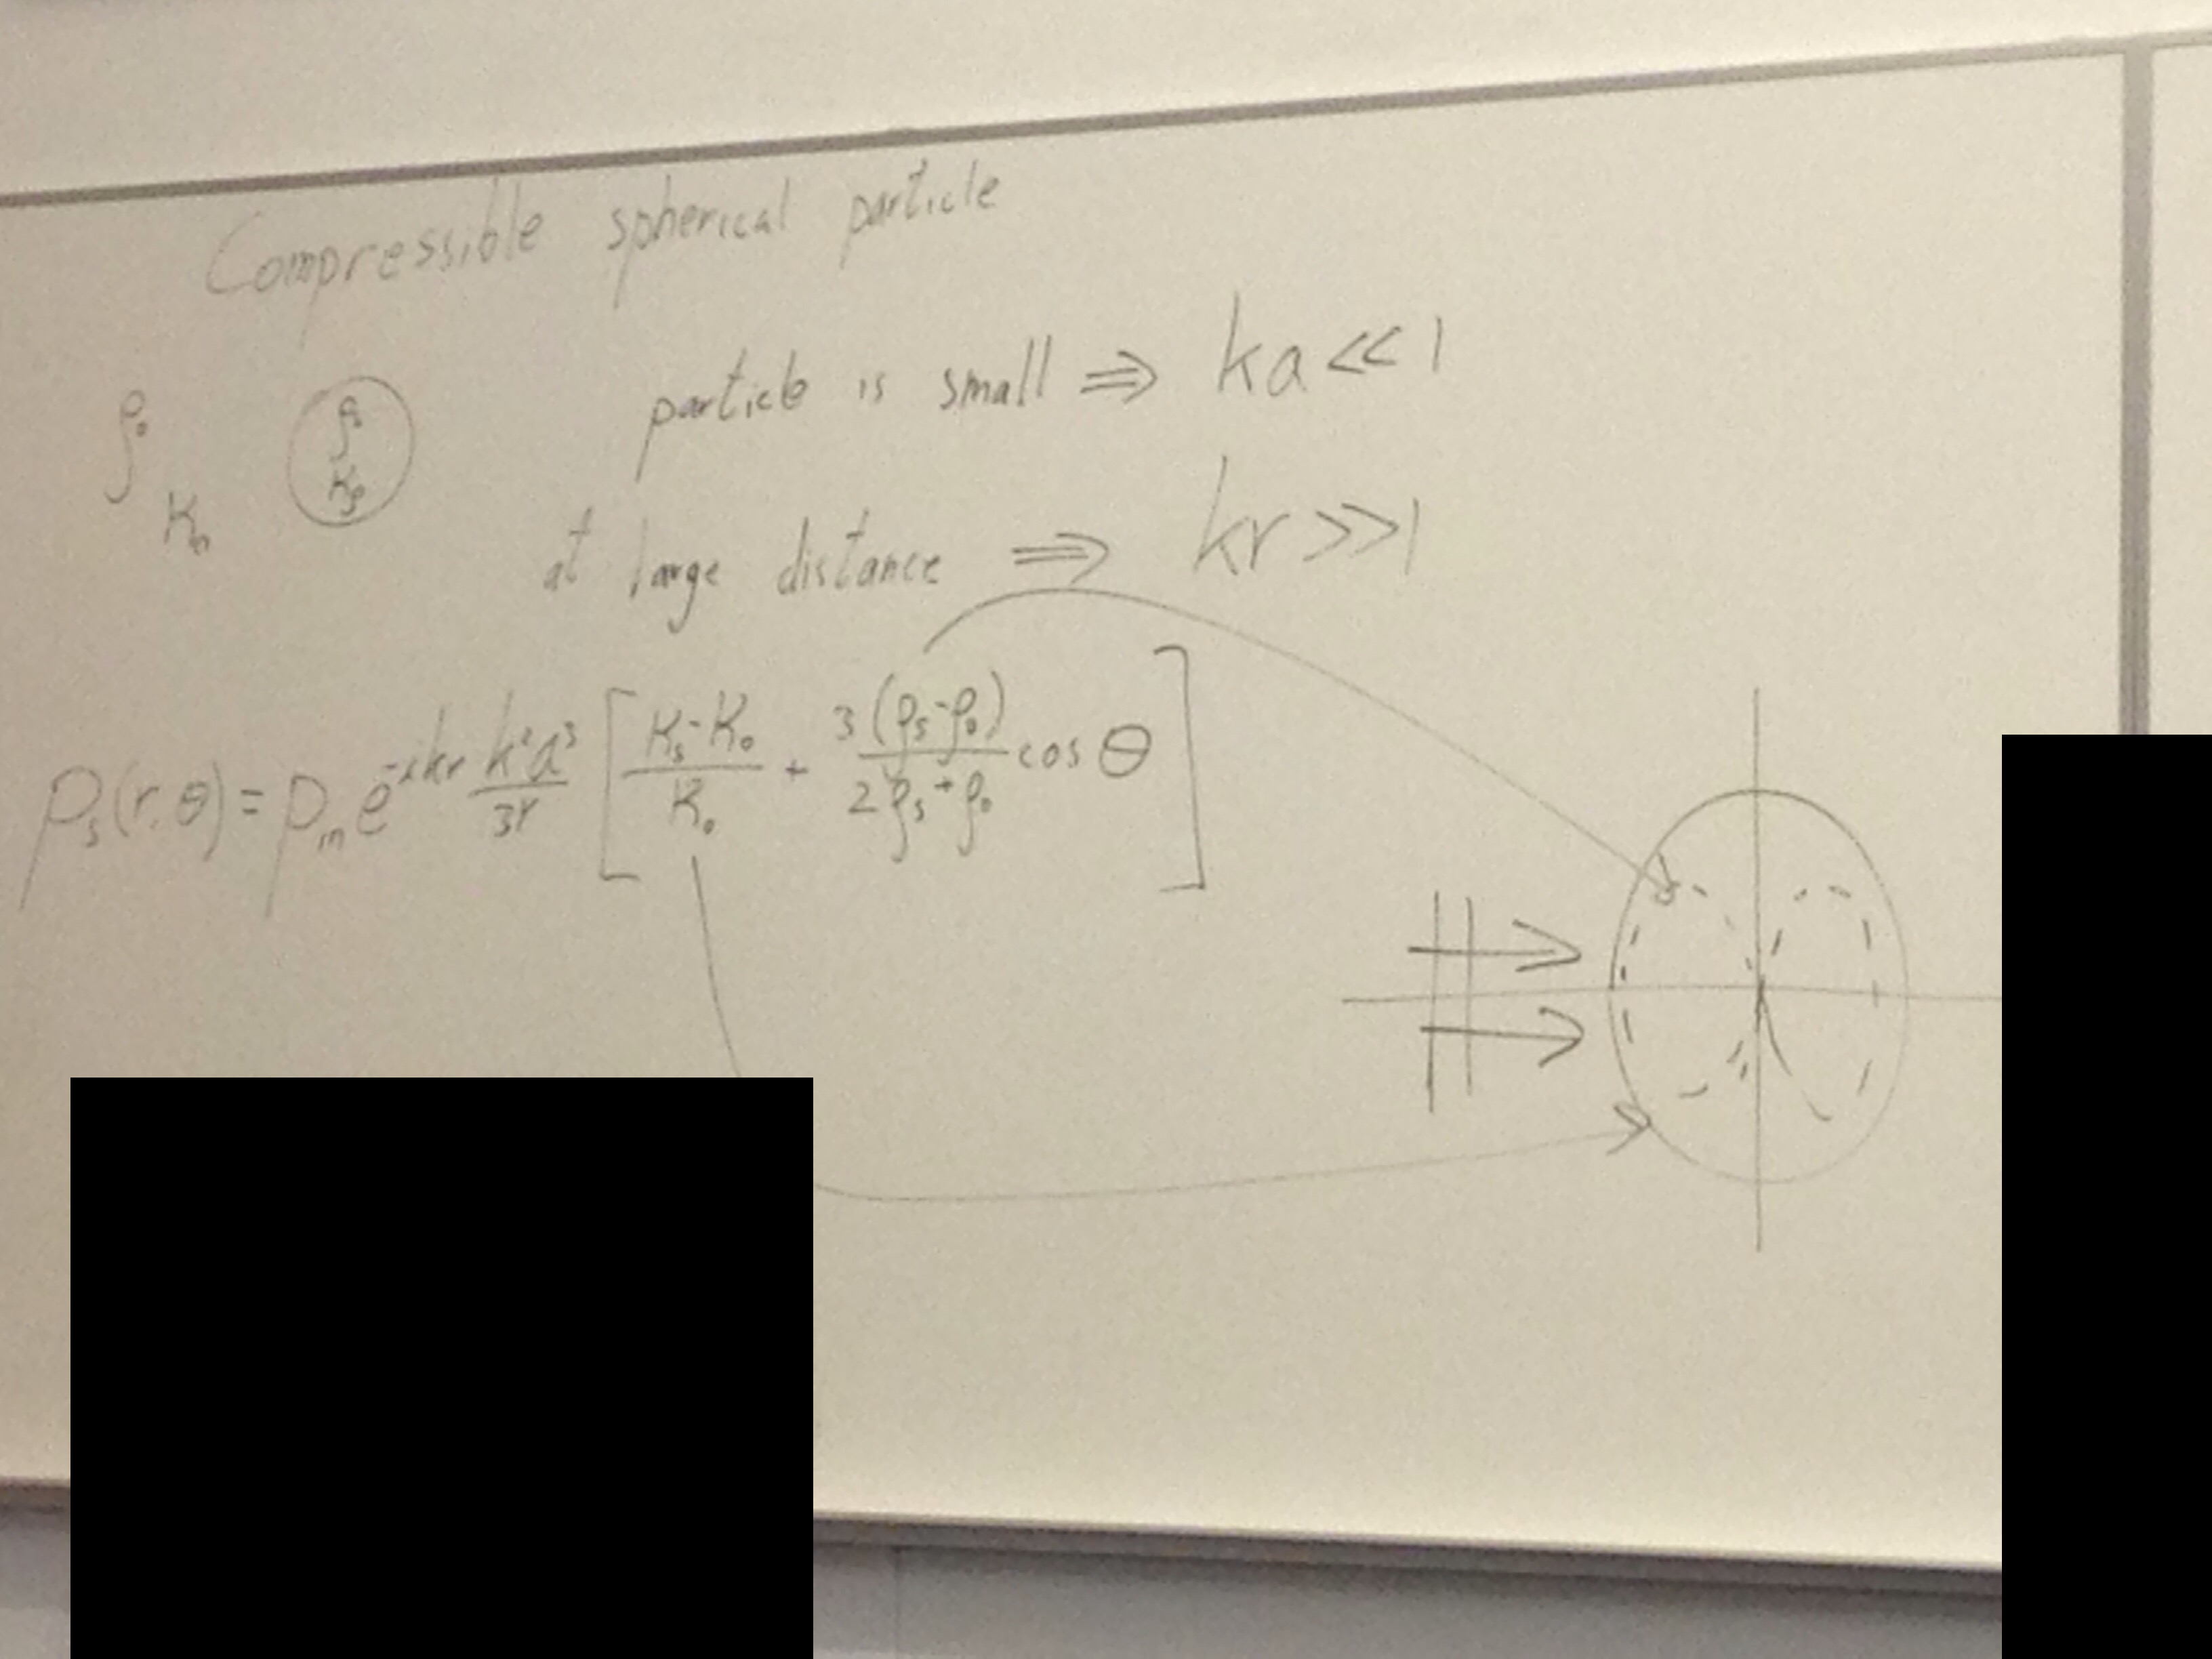 Compressible spherical particle
particle is small ⇒ ka << 1
ρ₀ K₀
ρₛ Kₛ
at large distance ⇒ kr >> 1
pₛ(r,θ) = pᵢₙ e^{-ikr} k²a³/3r [ (Kₛ-K₀)/K₀ + 3(ρₛ-ρ₀)/(2ρₛ+ρ₀) cos θ ]